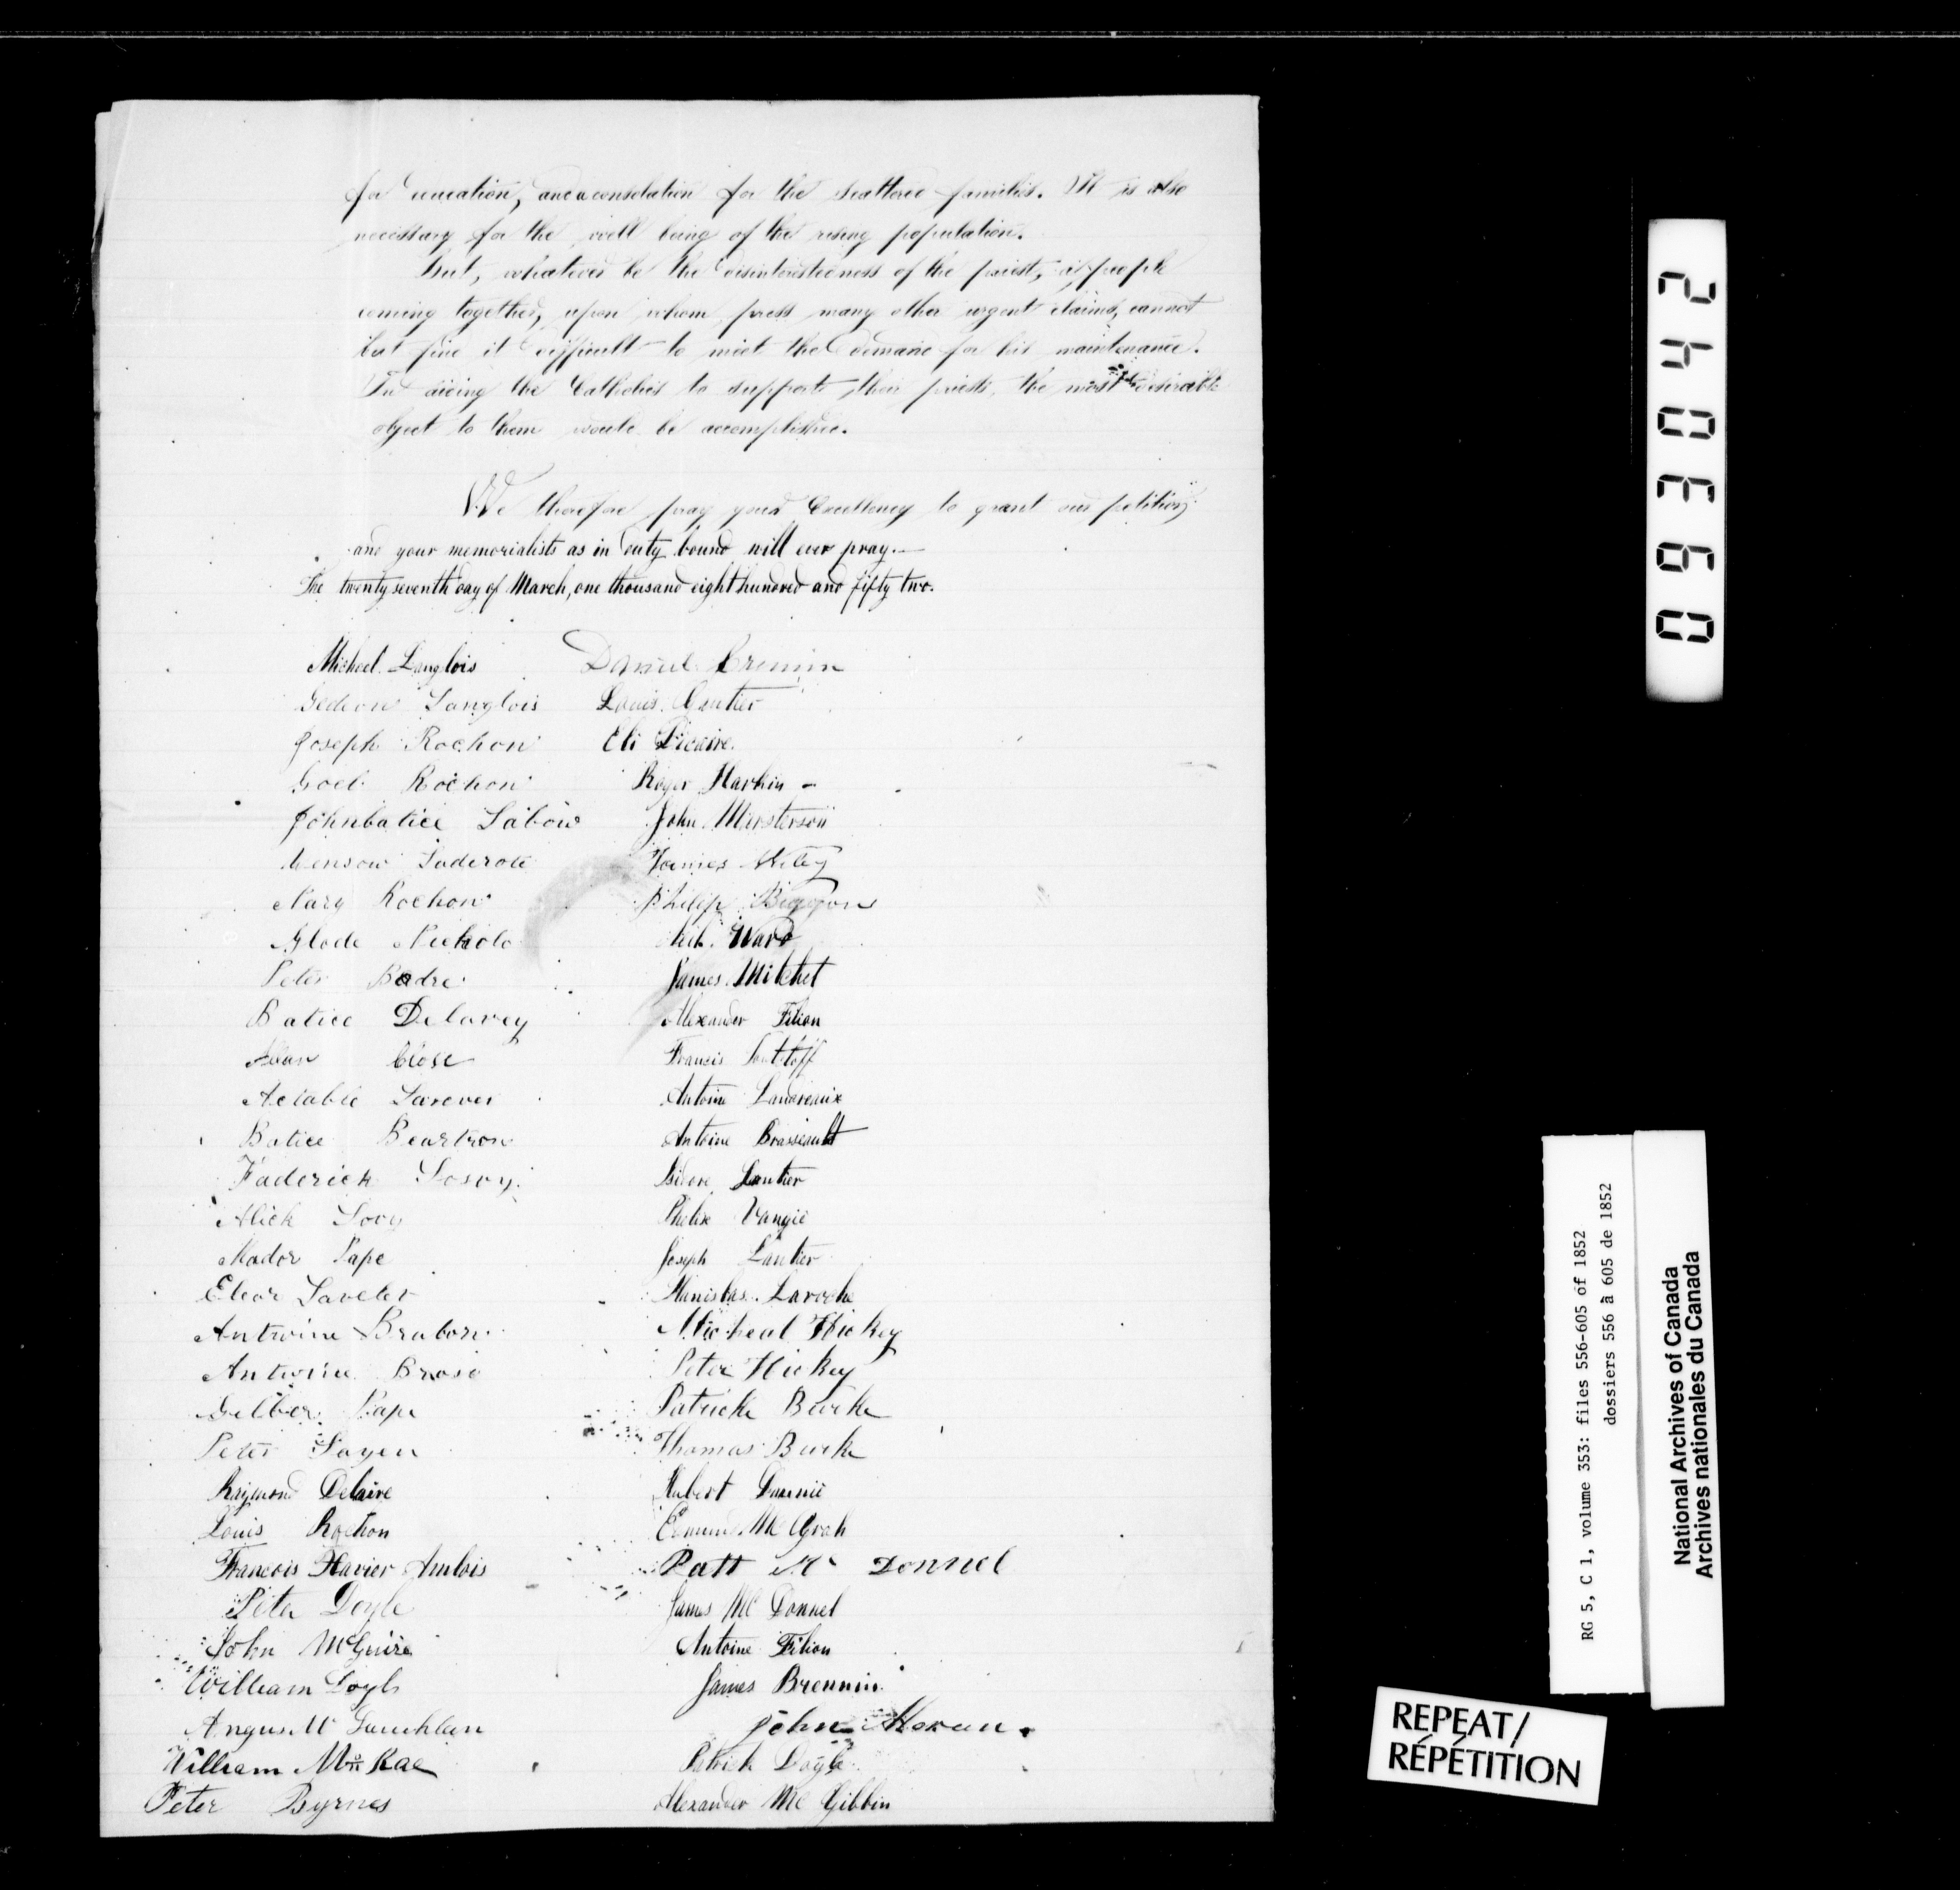 for education, and a consolation for the scattered families. It is also
necessary for the well being of the rising population.
But, whatever be the disinterestedness of the priest, a people
coming together, upon whom press many other urgent claims, cannot
but find it difficult to meet the demand for his maintenance.
In aiding the Catholics to support their priests, the most desirable
object to them would be accomplished.
We therefore pray your Excellency to grant our petition,
and your memorialists as in duty bound will ever pray.—
The twenty seventh day of March, one thousand eight hundred and fifty two.
Micheel Langlois
Gedeon Langlois
Joseph Rochon
Goel Rochon
Johnbatice Labow
Laderote
Nary Rochon
Glode Nickolo
Peter Badre
Batice Delarey
Close
Larever
Batice Beartron
Faderick Lovy
Alick Lovy
Mador Pape
Eleor Laveler
Antwine Brabore
Antwine Braso
Gilber Pape
Peter Layen
Raymond Delaire
Louis Rochon
Francois Xavier Anlois
Peter Doyle
John McGuire
William Doyle
Angus Mc Lauchlan
William McRae
Peter Byrnes
Daniel Cremin
Louis Gautier
Eli Dicaire
Roger Harkin –
John Mursterson
James Kiley
Philip Biggons
Ward
James Mitchel
Alexander Filion
Francis
Antoine Landreaux
Antoine Brasseault
Isidore Lautier
Phelix Vangie
Joseph Lautier
Stanislas Laroche
Micheal Hickey
Peter Hickey
Patrick Burke
Thomas Burke
Hubert
Edmund Mc Grah
Patt Mc Donnel
James Mc Donnel
Antoine Filion
James Brennin
John Moran.
Patrick Doyle
Alexander Mc Gibbin
063042
RG 5, C 1, volume 353: files 556-605 of 1852
dossiers 556 à 605 de 1852
National Archives of Canada
Archives nationales du Canada
REPEAT/
RÉPÉTITION